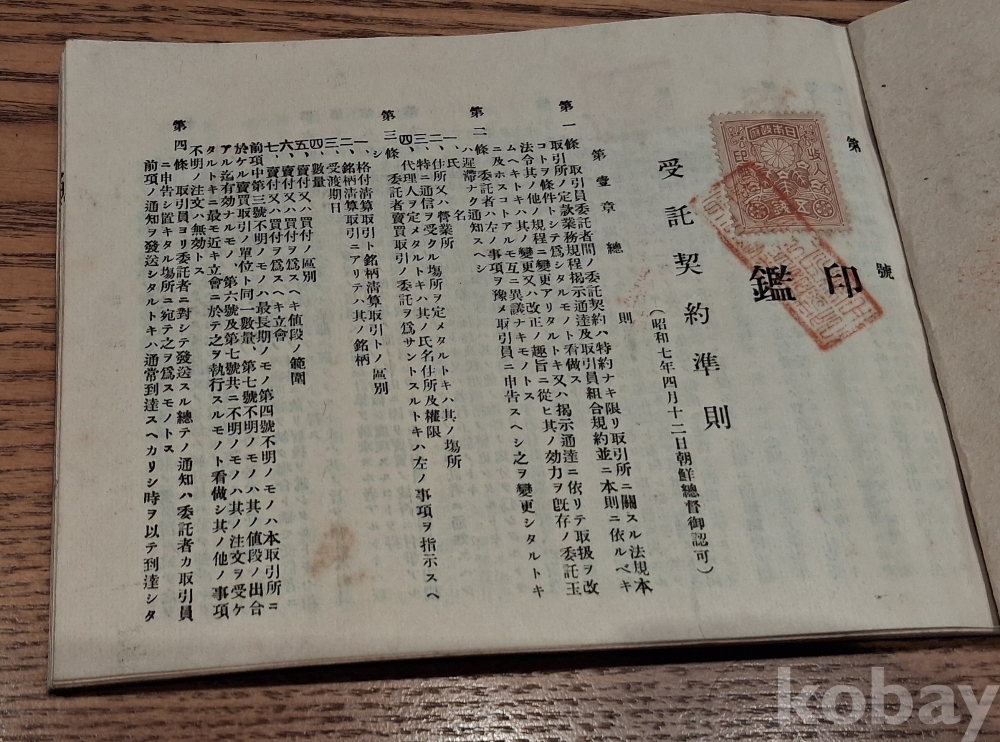 第
號
印鑑
日本政府
收入
印紙
五錢
受託契約準則
(昭和七年四月十二日朝鮮總督御認可)
第壹章 總則
第一條 取引員委託者間ノ委託契約ハ特約ナキ限リ取引所ニ關スル法規本
取引所ノ定款業務規程揭示通達及取引員組合規約並ニ本則ニ依ルベキ
コトヲ條件トシテ爲シタルモノト看做ス
法令其ノ他ノ規程ニ變更アリタルトキ又ハ揭示通達ニ依リテ取扱ヲ改
ムヘキトキハ其ノ變更又ハ改正ノ趣旨ニ從ヒ其ノ効力ヲ既存ノ委託玉
ニ及ホスコトアルモ互ニ異議ナキモノトス
第二條 委託者ハ左ノ事項ヲ豫メ取引員ニ申告スヘシ之ヲ變更シタルトキ
ハ遲滯ナク通知スヘシ
一、氏名
二、住所又ハ營業所
三、特ニ通信ヲ受クル場所ヲ定メタルトキハ其ノ場所
四、代理人ヲ定メタルトキハ其ノ氏名住所及權限
第三條 委託者賣買取引ノ委託ヲ爲サントスルトキハ左ノ事項ヲ指示スヘ
シ
一、格付淸算取引ト銘柄淸算取引トノ區別
二、銘柄淸算取引ニアリテハ其ノ銘柄
三、受渡期日
四、數量
五、賣付又ハ買付ノ區別
六、賣付又ハ買付ヲ爲スヘキ値段ノ範圍
七、賣付又ハ買付ヲ爲スヘキ立會
前項中第三號不明ノモノハ最長期ノモノ第四號不明ノモノハ本取引所ニ
於ケル賣買取引ノ單位ト同一數量、第七號不明ノモノハ其ノ値段ノ出合
アル迄有効ナルモノ、第六號及第七號共ニ不明ノモノハ其ノ注文ヲ受ケ
タルトキニ最モ近キ立會ニ於テ之ヲ執行スルモノト看做シ其ノ他ノ事項
不明ノ注文ハ無効トス
第四條 取引員ヨリ委託者ニ對シテ發送スル總テノ通知ハ委託者カ取引員
ニ申告シ置キタル場所ニ宛テ之ヲ爲スモノトス
前項ノ通知ヲ發送シタルトキハ通常到達スヘカリシ時ヲ以テ到達シタ
kobay